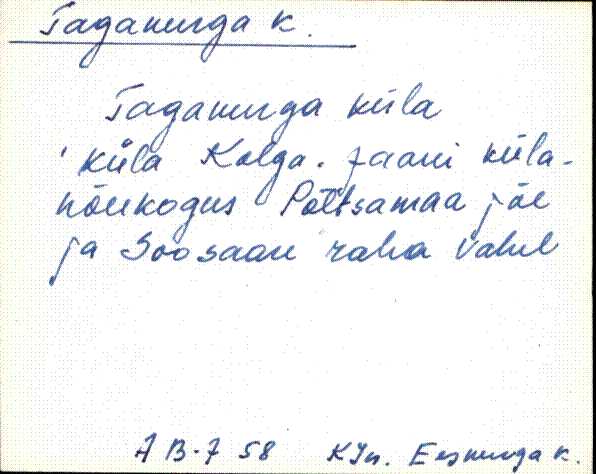 Taganurga k.
Taganurga küla
' küla Kolga-Jaani küla-
nõukogus Põltsamaa jõe
ja Soosaare raba vahel
A B-7 58 KJn. Eesnurga k.